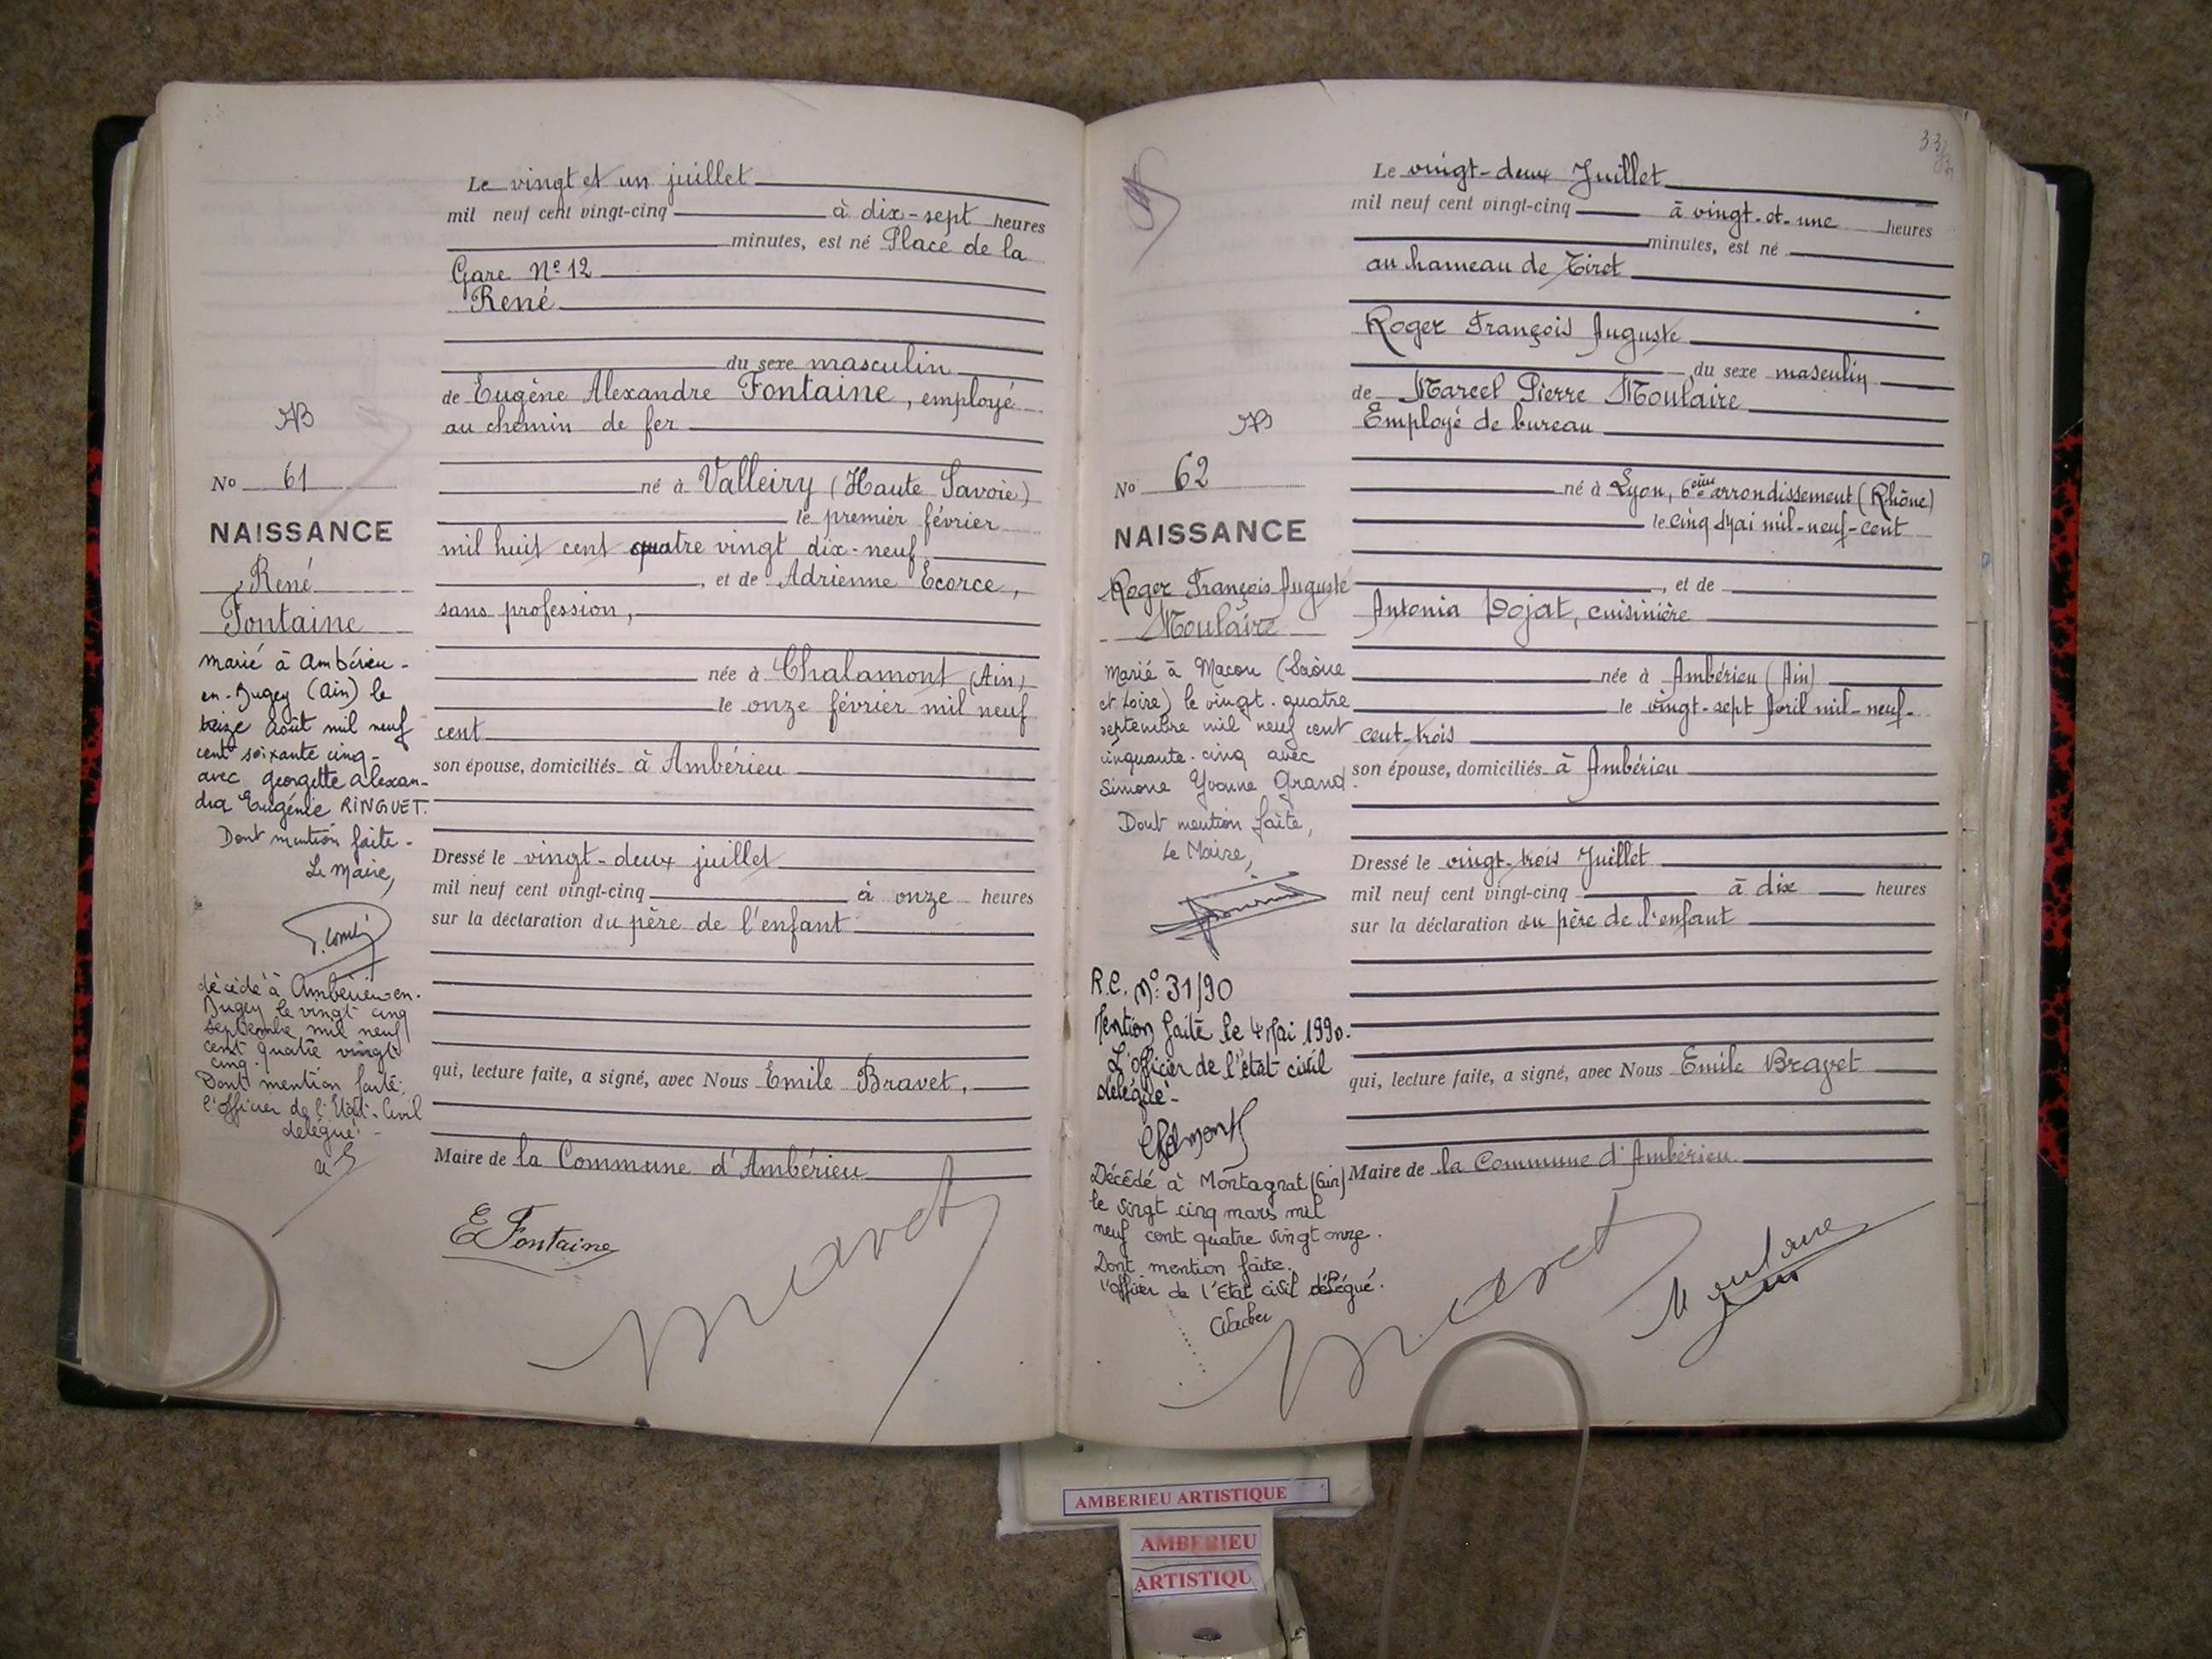 Le vingt et un juillet
mil neuf cent vingt-cinq à dix-sept heures
minutes, est né Place de la
Gare Nº 12
René
du sexe masculin
de Eugène Alexandre Fontaine, employé
au chemin de fer
né à Valleiry (Haute Savoie)
le premier février
mil huit cent quatre vingt dix-neuf
, et de Adrienne Ecorce,
sans profession,
née à Chalamont (Ain)
le onze février mil neuf
cent
son épouse, domiciliés à Ambérieu
Dressé le vingt-deux juillet
mil neuf cent vingt-cinq à onze heures
sur la déclaration du père de l'enfant
qui, lecture faite, a signé, avec Nous Emile Bravet,
Maire de la Commune d'Ambérieu
E Fontaine
No 61
NAISSANCE
René
Fontaine
marié à Ambérieu-
en-Bugey (Ain) le
treize Août mil neuf
cent soixante cinq-
avec georgette alexan-
dra Eugénie RINGUET.
Dont mention faite-
Le Maire,
décédé à Ambérieu-en-
Bugey le vingt cinq
septembre mil neuf
cent quatre vingt
cinq.
Dont mention faite:
l'Officier de l'Etat-Civil
délégué:
33
Le vingt-deux Juillet
mil neuf cent vingt-cinq à vingt-et-une heures
minutes, est né
au hameau de Tiret
Roger François Auguste
du sexe masculin
de Marcel Pierre Moulaire
Employé de bureau
né à Lyon, 6eme arrondissement (Rhône)
le cinq Mai mil-neuf-cent
, et de
Antonia Dojat, cuisinière
née à Ambérieu (Ain)
le vingt-sept Avril mil-neuf-
cent-trois
son épouse, domiciliés à Ambérieu
Dressé le vingt-trois Juillet
mil neuf cent vingt-cinq à dix heures
sur la déclaration du père de l'enfant
qui, lecture faite, a signé, avec Nous Emile Bravet
Maire de la Commune d'Ambérieu
No 62
NAISSANCE
Roger François Auguste
Moulaire
Marié à Macon (Saône
et Loire) le vingt-quatre
septembre mil neuf cent
cinquante-cinq avec
Simone Yvonne Grand.
Dont mention faite,
Le Maire,
R.C. Nº: 31/90
Mention faite le 4 Mai 1990.
L'Officier de l'état civil
délégué-
Décédé à Montagnat (Ain)
le vingt cinq mars mil
neuf cent quatre vingt onze.
Dont mention faite.
l'officier de l'Etat civil délégué.
AMBERIEU ARTISTIQUE
AMBERIEU
ARTISTIQU